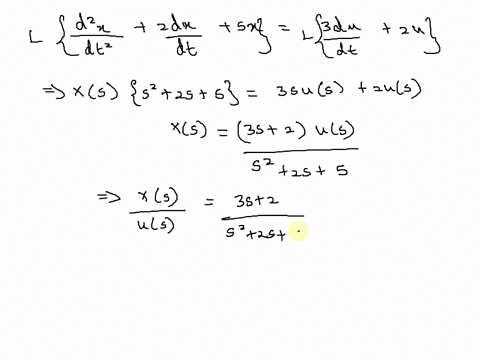 L {d²x/dt² + 2dx/dt + 5x} = L {3du/dt + 2u}
⇒ x(s) {s²+2s+5} = 3su(s) + 2u(s)
x(s) = (3s+2) u(s) / s²+2s+5
⇒ x(s)/u(s) = 3s+2 / s²+2s+